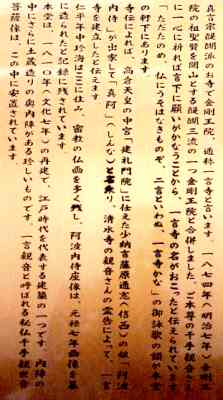 真言宗醍醐派のお寺で金剛王院、通称一言寺と言います。一八七四年(明治七年)金剛王
院の祖聖賢を開山とする醍醐三流の一つ金剛王院と合併しました。ご本尊の千手観音さま
に一心に祈れば言下に願いがかなうことから、一言寺の名がおこったと伝えられています。
「ただたのめ、仏にうそはなきものぞ、二言といわぬ、一言寺かな」の御詠歌の額が本堂
の軒下にあります。
寺伝によれば、高倉天皇の中宮(建礼門院)に仕えた少納言藤原通憲(信西)の娘「阿波
内侍」が出家して「真阿(しんな)」と名乗り、清水寺の観音さんの霊告によって、一言
寺を建立したと伝えます。
仁平年中珍海はここに住み 密教の仏画を多く残し、阿波内侍座像は、元禄七年画像を基
に造られたと記録に残されています。
本堂は、(一八一〇年文化七年)の再建で、江戸時代を代表する建築の一つです。内陣の
中にさらに土蔵造りの奥内陣がある珍しいものです。一言観音と呼ばれる秘仏千手観音
菩薩像は、この中に安置されています。